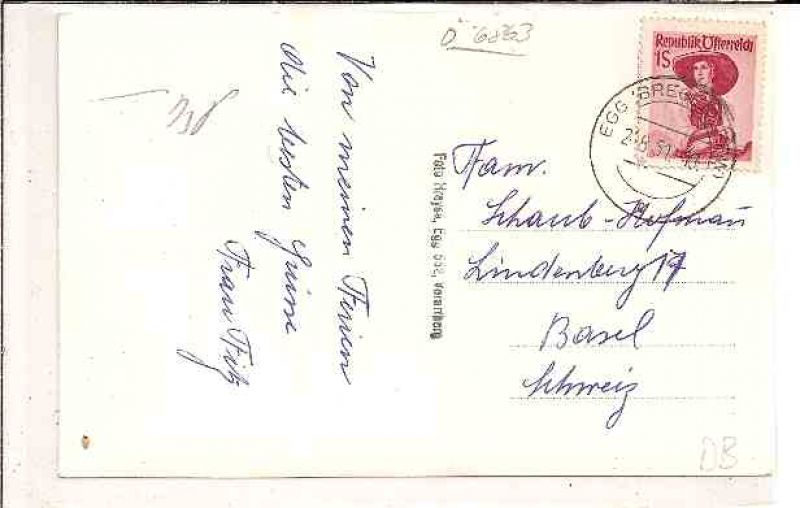 D 6863
Republik Österreich
1S
EGG
Von meinen Ferien
die besten Grüsse
Frau Fitz
Foto Kreyss, Egg 532, Vorarlberg
Fam.
Schaub-Hofmann
Lindenberg 17
Basel
Schweiz
DB